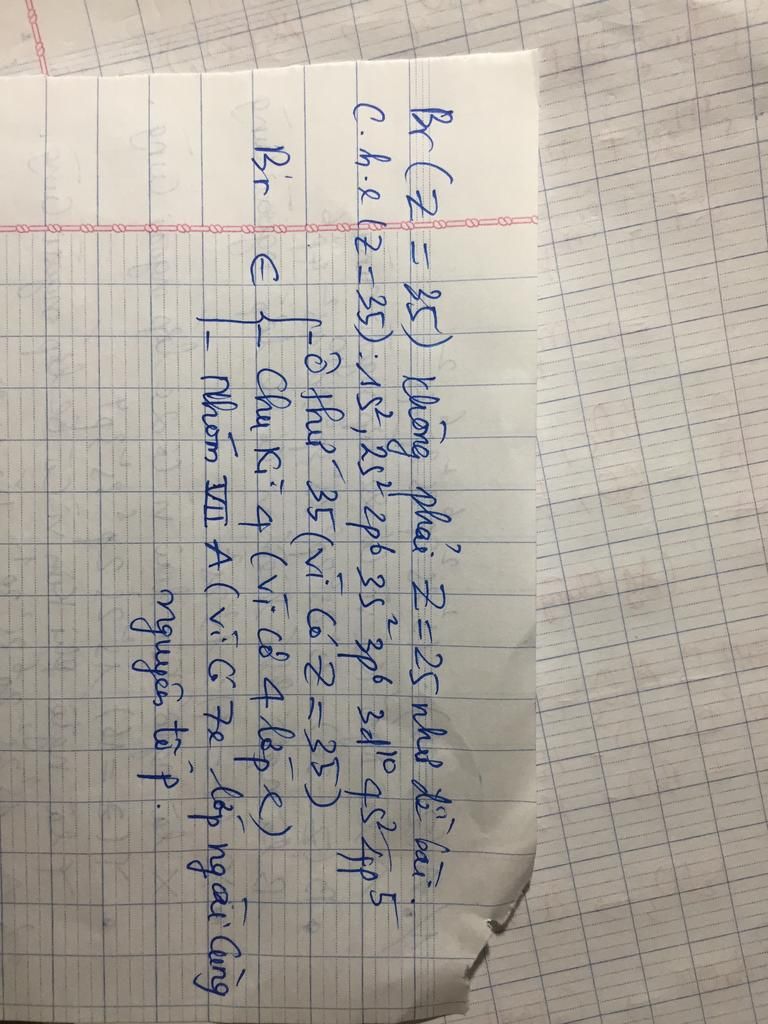 Br (Z = 35) không phải Z = 25 như đề bài.
C.h.e (Z = 35): 1s², 2s² 2p⁶ 3s² 3p⁶ 3d¹⁰ 4s² 4p⁵
- Ô thứ 35 (vì có Z = 35)
Br ∈ { - Chu kì 4 (vì có 4 lớp e)
- Nhóm VII A (vì có 7e lớp ngoài cùng
nguyên tố p.